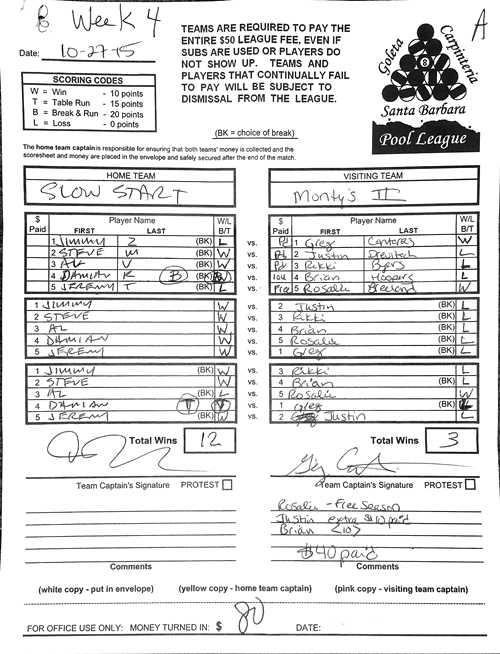 B Week 4
A
Date: 10-27-15
TEAMS ARE REQUIRED TO PAY THE
ENTIRE $50 LEAGUE FEE, EVEN IF
SUBS ARE USED OR PLAYERS DO
NOT SHOW UP. TEAMS AND
PLAYERS THAT CONTINUALLY FAIL
TO PAY WILL BE SUBJECT TO
DISMISSAL FROM THE LEAGUE.
Goleta
Carpinteria
8
Santa Barbara
Pool League
SCORING CODES
W = Win - 10 points
T = Table Run - 15 points
B = Break & Run - 20 points
L = Loss - 0 points
(BK = choice of break)
The home team captain is responsible for ensuring that both teams' money is collected and the
scoresheet and money are placed in the envelope and safely secured after the end of the match.
HOME TEAM VISITING TEAM
SLOW START Monty's II
$ Paid Player Name FIRST LAST W/L B/T $ Paid Player Name FIRST LAST W/L B/T
1 Jimmy Z (BK) L vs. Pd 1 Greg W
2 STEVE M (BK) W vs. Pd 2 Justin L
3 AL V (BK) W vs. Pd 3 Rikki Byers L
4 DAMIAN K B (BK) vs. IOU 4 Brian Hoopers L
5 JEREMY T (BK) L vs. Free 5 Rosalie W
1 Jimmy W vs. 2 Justin (BK) L
2 STEVE W vs. 3 Rikki (BK) L
3 AL W vs. 4 Brian (BK) L
4 DAMIAN W vs. 5 Rosalie (BK) L
5 JEREMY W vs. 1 Greg (BK) L
1 Jimmy (BK) W vs. 3 Rikki L
2 STEVE W vs. 4 Brian (BK) L
3 AL (BK) L vs. 5 Rosalie W
4 DAMIAN T vs. 1 Greg (BK) L
5 JEREMY (BK) W vs. 2 Justin L
Total Wins 12 Total Wins 3
Team Captain's Signature PROTEST Team Captain's Signature PROTEST
Rosalie - Free Season
Justin extra $10 paid
Brian <10>
$40 paid
Comments Comments
(white copy - put in envelope) (yellow copy - home team captain) (pink copy - visiting team captain)
FOR OFFICE USE ONLY: MONEY TURNED IN: $ 80 DATE: